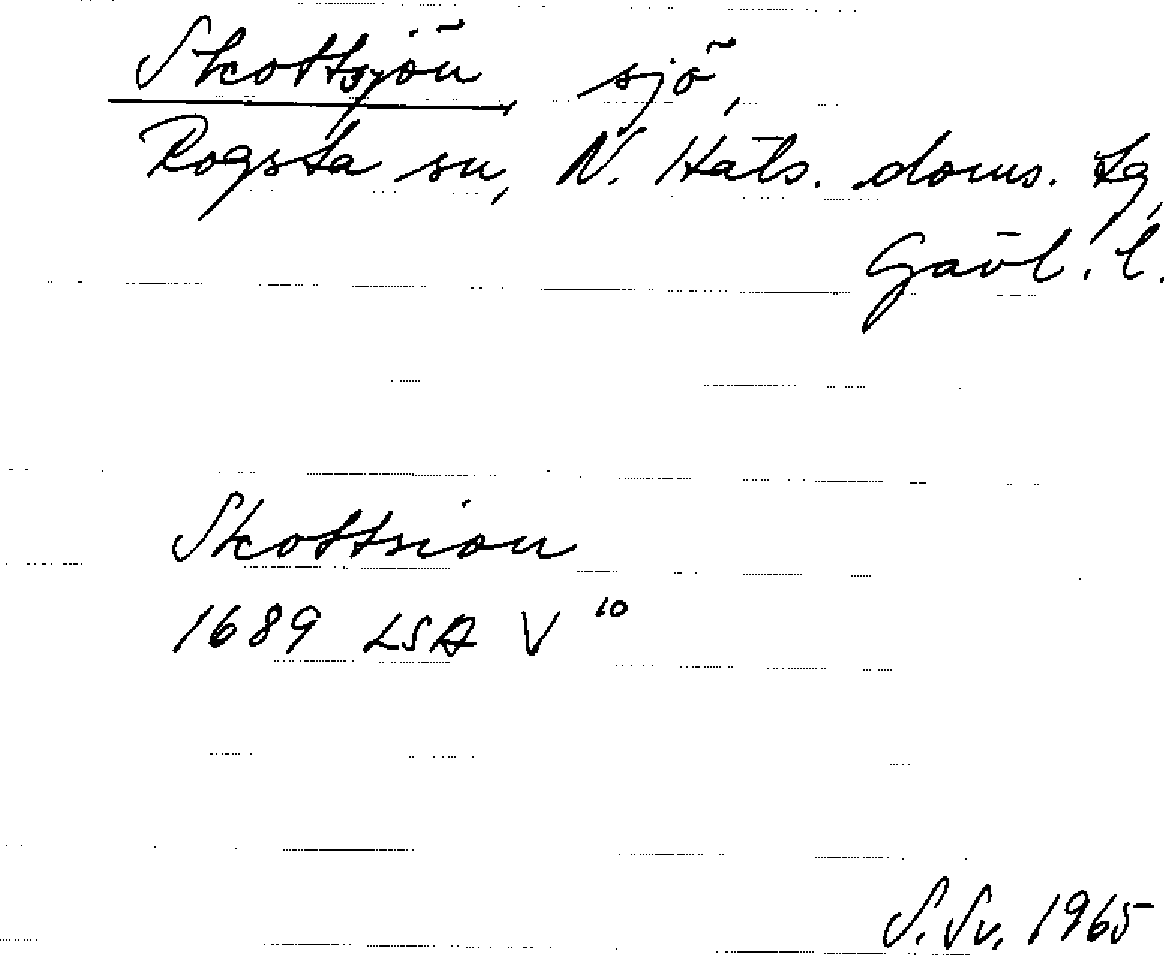 Skottsjön sjö,
Rogsta sn, N. Häls. doms. tg,
Gävl. l.
Skottsion
1689 LSA V 10
S. Sv. 1965